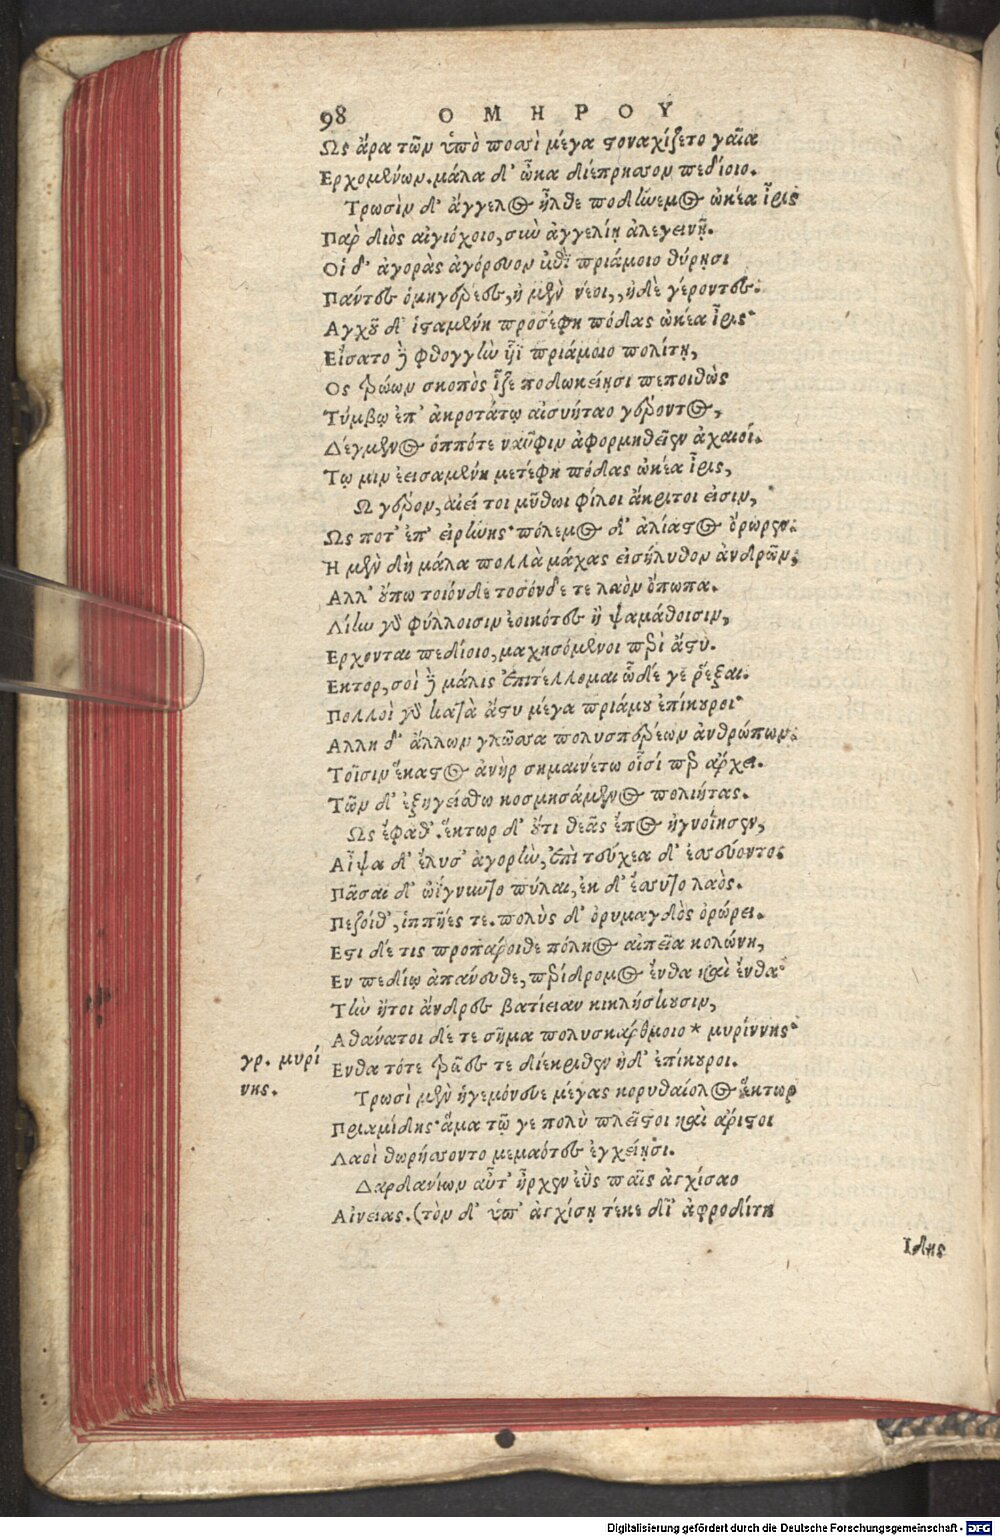 98 ΟΜΗΡΟΥ
Ως ἄρα τῶν ὑπὸ ποσσὶ μέγα στοναχίζετο γαῖα
Ερχομένων. μάλα δ' ὦκα διέπρησσον πεδίοιο.
Τρωσὶν δ' ἄγγελος ἦλθε ποδήνεμος ὠκέα ἶρις
Παρ διὸς αἰγιόχοιο, σὺν ἀγγελίῃ ἀλεγεινῇ.
Οἱ δ' ἀγορὰς ἀγόρευον ἐπὶ πριάμοιο θύρῃσι
Πάντες ὁμηγερέες, ἠ μὲν νέοι, ἠδὲ γέροντες.
Αγχοῦ δ' ἱσταμένη προσέφη πόδας ὠκέα ἶρις·
Εἴσατο δὲ φθογγὴν υἷϊ πριάμοιο πολίτῃ,
Ος τρώων σκοπὸς ἷζε ποδωκείῃσι πεποιθὼς
Τύμβῳ ἐπ' ἀκροτάτῳ αἰσυήταο γέροντος,
Δέγμενος ὁππότε ναῦφιν ἀφορμηθεῖεν ἀχαιοί.
Τῳ μιν ἐεισαμένη μετέφη πόδας ὠκέα ἶρις,
Ω γέρον, αἰεί τοι μῦθωι φίλοι ἄκριτοι εἰσιν,
Ως ποτ' ἐπ' εἰρήνης· πόλεμος δ' ἀλίαστος ὄρωρεν.
Ἠ μὲν δὴ μάλα πολλὰ μάχας εἰσήλυθον ἀνδρῶν,
Αλλ' οὔπω τοιόνδε τοσόνδε τε λαὸν ὄπωπα.
Λίην γὰρ φύλλοισιν ἐοικότες ἢ ψαμάθοισιν,
Ερχονται πεδίοιο, μαχησόμενοι περὶ ἄστυ.
Εκτορ, σοὶ δὲ μάλιστ' ἐπιτέλλομαι ὧδέ γε ῥέξαι.
Πολλοὶ γὰρ κατὰ ἄστυ μέγα πριάμου ἐπίκουροι·
Αλλη δ' ἄλλων γλῶσσα πολυσπερέων ἀνθρώπων.
Τοῖσιν ἕκαστος ἀνὴρ σημαινέτω οἷσί περ ἄρχει.
Τῶν δ' ἐξηγείσθω κοσμησάμενος πολιήτας.
Ως ἔφαθ'. ἕκτωρ δ' οὔτι θεᾶς ἔπος ἠγνοίησεν,
Αἶψα δ' ἔλυσ' ἀγορὴν, ἐπὶ τεύχεα δ' ἐσσεύοντο·
Πᾶσαι δ' ὠΐγνυντο πύλαι, ἐκ δ' ἔσσυτο λαὸς.
Πεζοίθ', ἱππῆές τε. πολὺς δ' ὀρυμαγδὸς ὀρώρει.
Εστι δέ τις προπάροιθε πόλιος αἰπεῖα κολώνη,
Εν πεδίῳ ἀπάνευθε, περίδρομος ἔνθα καὶ ἔνθα·
Τὴν ἤτοι ἄνδρες βατίειαν κικλήσκουσιν,
Αθάνατοι δέ τε σῆμα πολυσκάρθμοιο * μυρίννης·
Ενθα τότε τρῶές τε διέκριθεν ἠδ' ἐπίκουροι.
Τρωσὶ μὲν ἡγεμόνευε μέγας κορυθαίολος ἕκτωρ
Πριαμίδης· ἅμα τῷ γε πολὺ πλεῖστοι καὶ ἄριστοι
Λαοὶ θωρήσσοντο μεμαότες ἐγχείῃσι.
Δαρδανίων αὖτ' ἦρχεν ἐῢς παῖς ἀγχίσαο
Αἰνείας. (τὸν δ' ὑπ' ἀγχίσῃ τέκε δῖ' ἀφροδίτη
Ιδης
γρ. μυρί
νης.
Digitalisierung gefördert durch die Deutsche Forschungsgemeinschaft - DFG